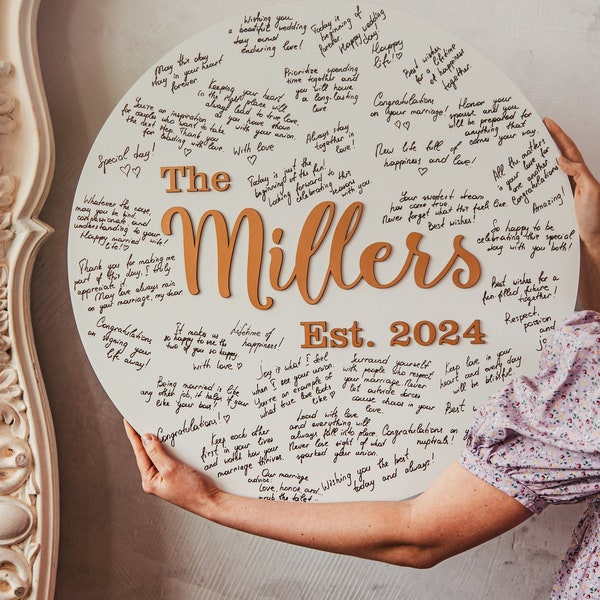 Wishing you
a beautiful wedding
day amid
enduring love!
Today is
beginning of
forever. Happy wedding
day
Happy
life! ♡
Best wishes
for a lifetime
of happiness
together.
May this day
stay in your heart
forever.
Prioritize spending
time together and
you will have
a long-lasting
love.
Keeping your heart
in the right place will
always lead to true love.
You're an inspiration
for couples who want to take
the next step. Thank you
for leading with love.
as you leave them
with your union.
Congratulations
on your marriage!
Honor your
spouse and you
will be prepared for
anything that
comes your way.
Special day!
With love
Always stay
together in
love!
New life full of
happiness and love!
All the mothers
in your life
love another
Congratulations!
Today is just the
beginning of the fun!
Looking forward to this
celebrating
with you.
Your sweetest dream
has come true.
Never forget what this feels like.
Best wishes!
Amazing!
The
Millers
Est. 2024
Whatever the case,
may you be kind,
compassionate and
understanding to
your wife!
Happy married
life! ☺
So happy to be
celebrating this special
day with you both!
Thank you for making me
part of this day. I truly
appreciate it.
May love always rain
on your marriage, my dear.
Best wishes for a
fun filled future
together!
Respect,
passion
and
Congratulations
on signing
your
life away!
It makes us
so happy to see the
two of you so happy
With love ♡
Lifetime of
happiness!
Joy is what I feel
when I see your union.
You're an example of
what true love looks
like ♡
Surround yourself
with people who respect
your marriage. Never
let outside forces
cause chaos in your
love.
Keep love in your
heart and every day
will be blissful.
Being married is like
any other job, it helps if you
like your boss!
Best
Congratulations!
Keep each other
first in your lives
and watch how your
marriage thrives.
Lead with love
and everything will
always fall into place.
Never lose sight of what
sparked your union.
Congratulations on your
nuptials!
Our marriage
advice:
Love, honor, and
scrub the toilet...
Wishing you the best
today and always!